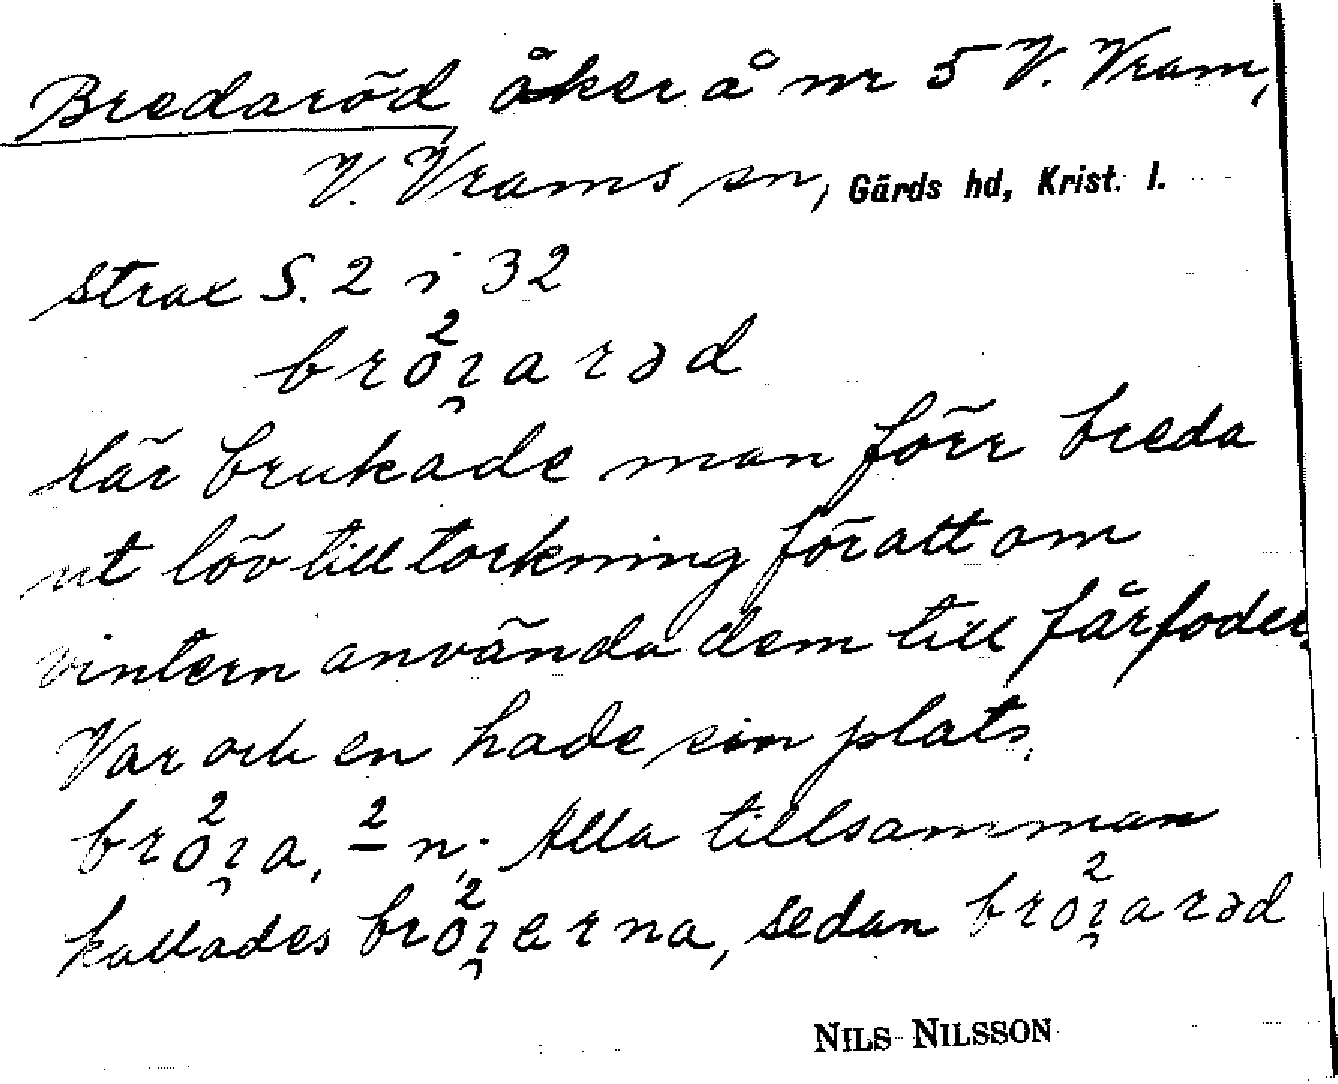 Bredaröd åker å nr 5 V. Vram,
V. Vrams sn, Gärds hd, Krist. l.
strax S. 2 i 32
Här brukade man förr breda
ut löv till torkning för att om
vintern använda dem till fårfoder.
Var och en hade sin plats.
Alla tillsamman
kallades sedan
NILS NILSSON